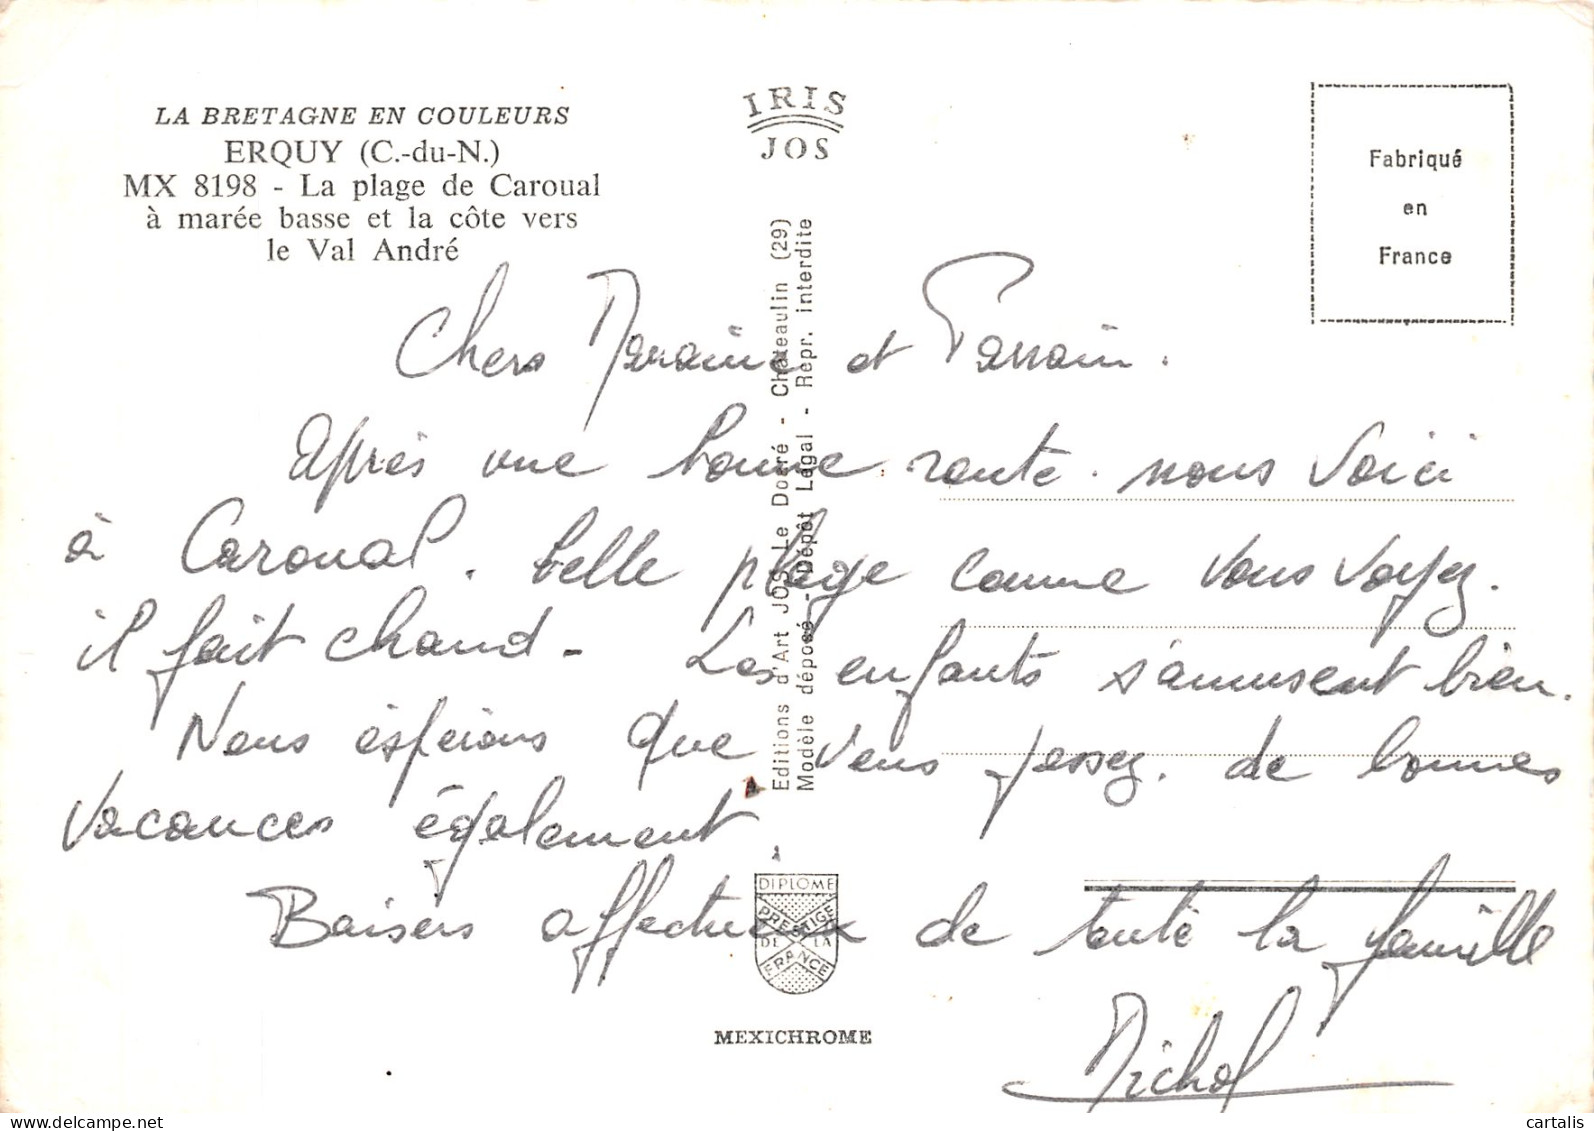 LA BRETAGNE EN COULEURS
ERQUY (C.-du-N.)
MX 8198 - La plage de Caroual
à marée basse et la côte vers
le Val André
IRIS
JOS
Fabriqué
en
France
Editions d'Art JOS Le Doaré - Châteaulin (29)
Modèle déposé - Dépôt Légal - Repr. interdite
Chers Marraine et Parrain.
Après une bonne route. nous voici
à Caroual. belle plage comme vous voyez.
il fait chaud - Les enfants s'amusent bien.
Nous éspérons que vous passez. de bonnes
vacances également
Baisers affectueux de toute la famille
Michel
DIPLOME
PRESTIGE
DE LA
FRANCE
MEXICHROME
www.cartalis.delcampe.net
cartalis